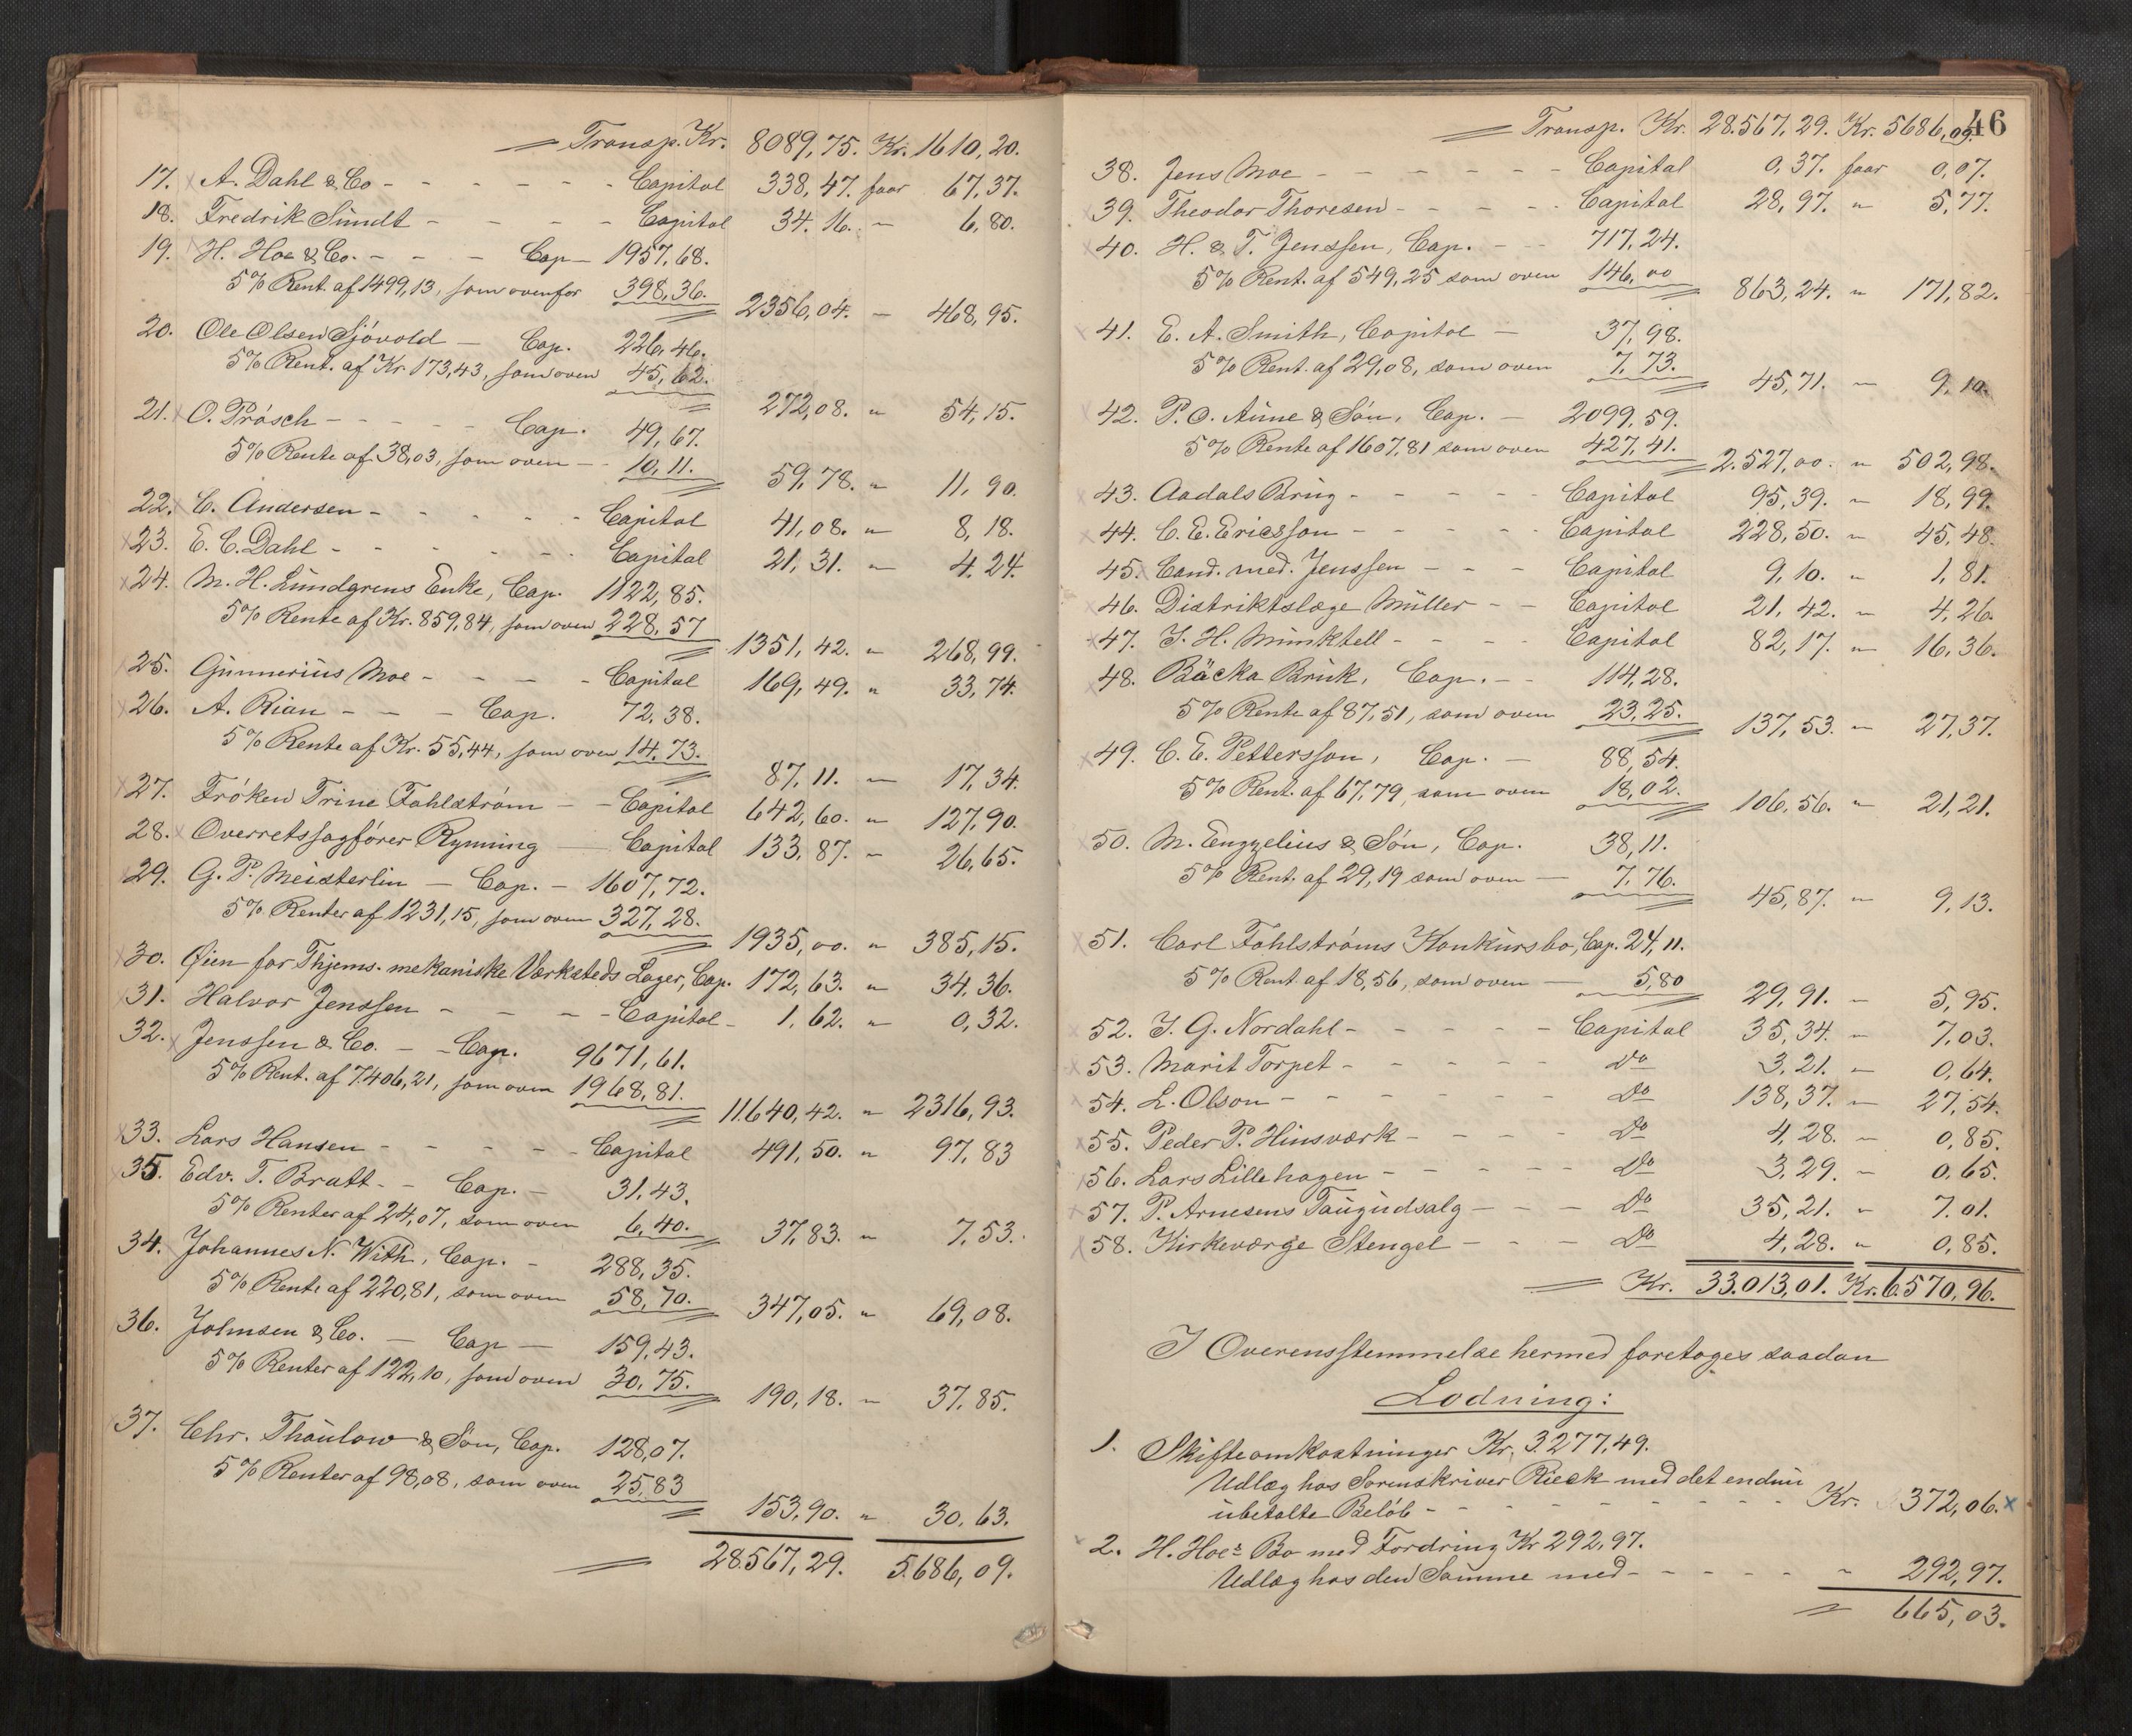 Transp. Kr. 8089,75. Kr. 1610,20.
17. A. Dahl & Co - - - - - - Capital 338,47. faar 67,37.
18. Fredrik Sundt - - - - Capital 34.16. - 6,80.
19. H. Hoe & Co. - - - Cap - 1957,68.
5% Rent. af 1499,13, som ovenfor 398,36. 2356,04. - 468,95.
20. Ole Olsen Sjövold - Cap. 226,46.
5% Rent. af Kr. 173,43, som oven 45,62. 272,08. " 54,15.
21. O. Prösch - - - - - Cap. 49,67.
5% Rente af 38,03, som oven - - 10,11. 59,78. " 11,90.
22. C. Andersen - - - - - Capital 41,08. " 8,18.
23. E. C. Dahl - - - - - - Capital 21,31. " 4,24.
24. M. H. Lundgrens Enke, Cap. 1122,85.
5% Rente af Kr. 859,84, som oven 228,57 1351,42. " 268,99.
25. Gunnerius Moe - - - - - Capital 169,49. " 33,74.
26. A. Rian - - - Cap. 72,38.
5% Rente af Kr. 55,44, som oven 14,73. 87,11. " 17,34.
27. Fröken Trine Fahlström - - Capital 642,60. " 127,90.
28. Overretssagförer Rynning - Capital 133,87. " 26,65.
29. G. P. Meisterlin - Cap. - 1607,72.
5% Renter af 1231,15, som oven 327,28. 1935,00. " 385,15.
30. Øien for Thjems. mekaniske Værksteds Lager, Cap. 172,63. " 34,36.
31. Halvor Jenssen - - - - Capital - 1,62. " 0,32.
32. Jenssen & Co. - - Cap. 9671,61.
5% Rent. af 7.406,21, som oven 1968,81. 11.640,42. " 2316,93.
33. Lars Hansen - - - - - Capital 491,50. " 97,83
35. Edv. T. Bratt - - Cap. - 31,43.
5% Renter af 24,07, som oven 6,40. 37,83. " 7,53.
34. Johannes N. With, Cap. - 288,35.
5% Rente af 220,81, som oven 58,70. 347,05. " 69,08.
36. Johnsen & Co. - Cap - 159,43.
5% Renter af 122,10, som oven 30,75. 190,18. " 37,85.
37. Chr. Thaulow & Søn, Cap. 128,07.
5% Renter af 98,08, som oven 25,83 153,90. " 30,63.
28.567,29. 5.686,09.
46
Transp. Kr. 28.567,29. Kr. 5686,09.
38. Jens Moe - - - - - - Capital 0,37. faar 0,07.
39. Theodor Thoresen - - - - - Capital 28,97. " 5,77.
40. H. & T. Jenssen, Cap. - - 717,24.
5% Rent. af 549,25 som oven 146,00 863,24. " 171,82.
41. E. A. Smith, Capital - 37,98.
5% Rent. af 29,08, som oven 7,73. 45,71. " 9,10.
42. P. O. Aune & Søn, Cap. - 2099,59.
5% Rente af 1607,81 som oven 427,41. 2.527,00. " 502,98.
43. Aadals Brug - - - - - Capital 95,39. " 18,99.
44. C. E. Ericsson - - - - - Capital 228,50. " 45,48.
45. Cand. med. Jenssen - - - Capital 9,10. " 1,81.
46. Distriktslæge Müller - - Capital 21,42. " 4,26.
47. J. H. Munktell - - - - Capital 82,17. " 16,36.
48. Bäcka Bruk, Cap. - - 114,28.
5% Rente af 87,51, som oven 23,25. 137,53. " 27,37.
49. C. E. Pettersson, Cap. - 88,54.
5% Rent. af 67,79, som oven 18,02. 106,56. " 21,21.
50. M. Engzelius & Søn, Cap. 38,11.
5% Rent. af 29,19 som oven - 7,76. 45,87. " 9,13.
51. Carl Fahlströms Konkursbo, Cap. 24,11.
5% Rent. af 18,56, som oven - 5,80 29,91. - 5,95.
52. J. G. Nordahl - - - - - Capital 35,34. - 7,03.
53. Marit Torpet - - - - - Do 3,21. - 0,64.
54. L. Olson - - - - - - Do 138,37. - 27,54.
55. Peder P. Hinsværk - - - - Do 4,28. - 0,85.
56. Lars Lillehagen - - - - - Do 3,29. - 0,65.
57. P. Arnesens Taugudsalg - - - Do 35,21. " 7,01.
58. Kirkeværge Stengel - - - Do 4,28. " 0,85.
Kr. 33.013,01. Kr. 6.570,96.
I Overensstemmelse hermed foretages saadan
Lodning:
1. Skifteomkostninger Kr. 3.277,49.
Udlæg hos Sorenskriver Rieck med det endnu
ubetalte Beløb - - - - - - - - - Kr. 372,06. x
2. H. Hoes Bo med Fordring Kr 292,97.
Udlæg hos den Samme med - - - - - " 292,97.
665,03.